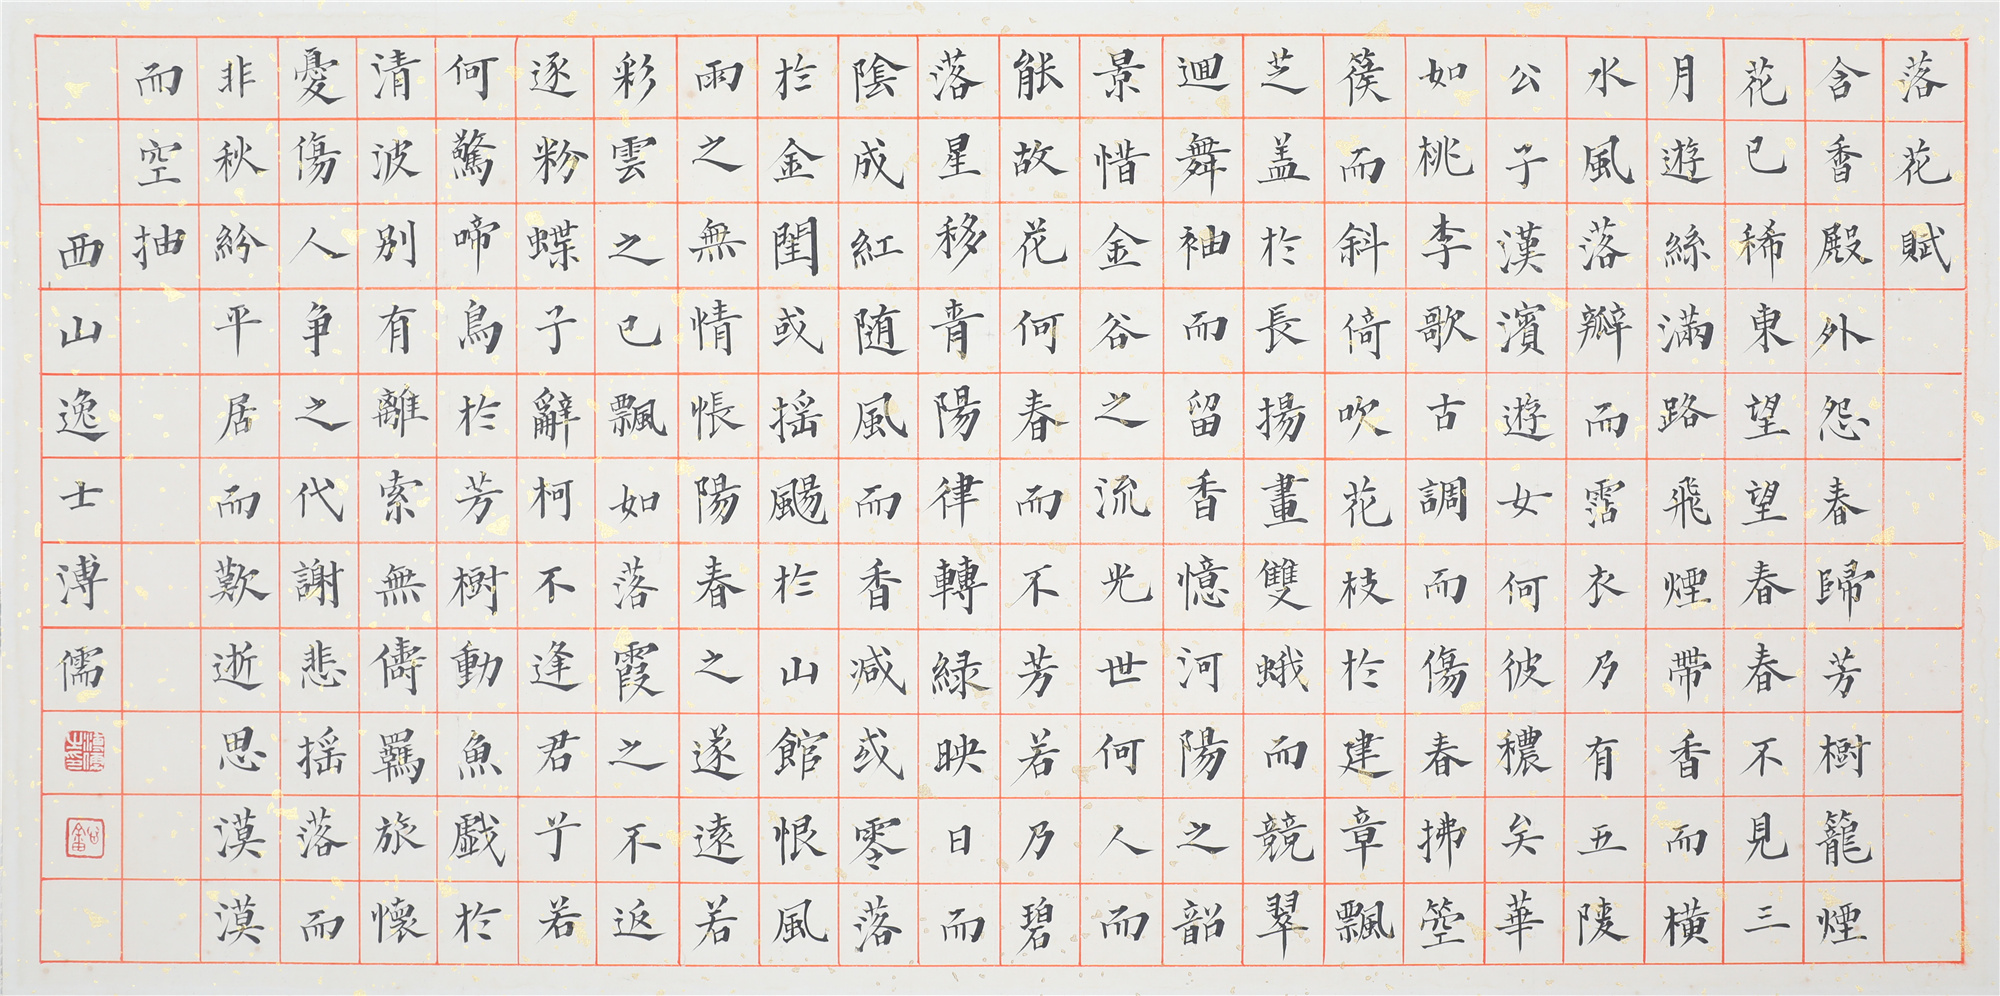 落花賦
含香殿外怨春歸芳樹籠煙
花已稀東望望春春不見三
月遊絲滿路飛煙帶香而橫
水風落瓣而霑衣乃有五陵
公子漢濱遊女何彼穠矣華
如桃李歌古調而傷春拂箜
篌而斜倚吹花枝於建章飄
芝盖於長揚畫雙蛾而競翠
迴舞袖而留香憶河陽之韶
景惜金谷之流光世何人而
能故花何春而不芳若乃碧
落星移青陽律轉綠映日而
陰成紅随風而香减或零落
於金閨或揺颺於山館恨風
雨之無情悵陽春之遂遠若
彩雲之已飄如落霞之不返
逐粉蝶子辭柯不逢君兮若
何驚啼鳥於芳樹動魚戲於
清波別有離索無儔羈旅懷
憂傷人争之代謝悲揺落而
非秋紛平居而歎逝思漠漠
而空抽
西山逸士溥儒